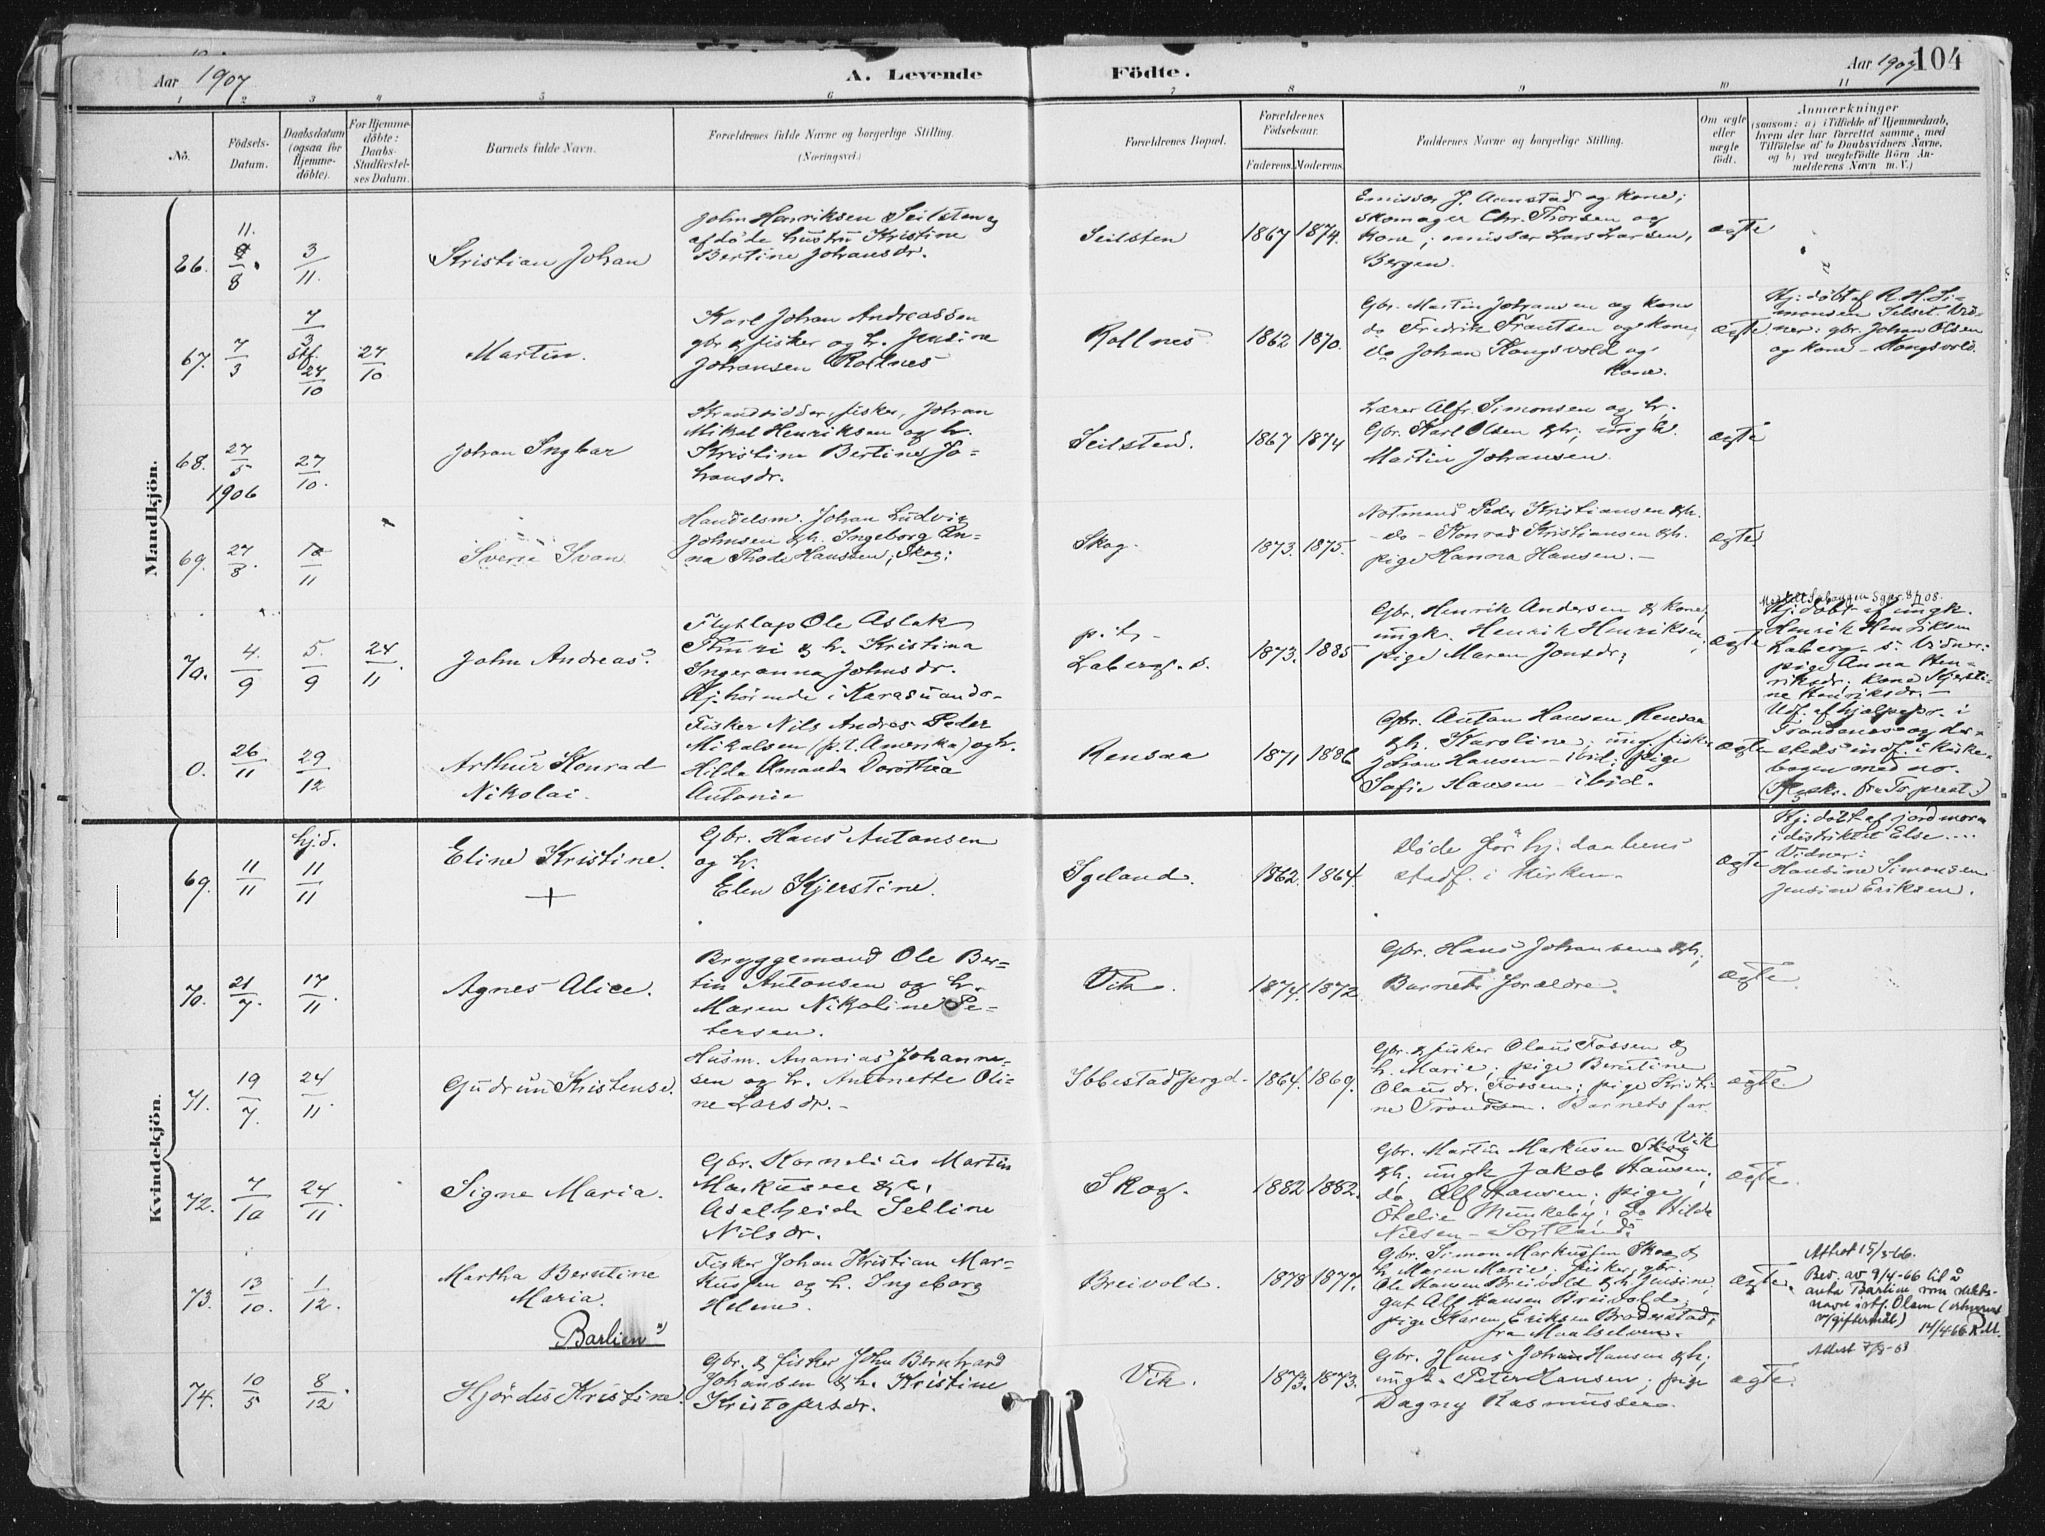 Aar 1907
A. Levende
Födte.
Aar 1907
104
1 2 3 4 5 6 7 8 9 10 11
No.
Födsels-
Datum.
Daabsdatum
(ogsaa for
Hjemme-
döbte).
For Hjemme-
döbte:
Daabs-
Stadfæstel-
ses Datum.
Barnets fulde Navn.
Forældrenes fulde Navne og borgerlige Stilling.
(Næringsvei.)
Forældrenes Bopæl.
Forældrenes
Födselsaar.
Faderens. Moderens.
Faddernes Navne og borgerlige Stilling.
Om ægte
eller
uægte
födt.
Anmærkninger
(saasom: a) i Tilfælde af Hjemmedaab,
hvem der har forrettet samme, med
Tilföielse af to Daabsvidners Navne,
og b) ved uegtefödte Börn An-
melderens Navn m. V.)
Mandkjön.
66.
11.
8
3
11.
Kristian Johan
John Henriksen Seilsten og
afdøde hustru Kristine
Bertine Johansdr.
Seilsten
1867 1874.
Emissær J. Aunstad og kone;
skomager Chr. Thorsen og
kone; emissær Lars Larsen,
Bergen.
ægte
67.
7
3
7
3
stf.
27
10
27
10.
Martin.
Karl Johan Andreassen
gbr & fisker og h. Jensine
Johansen Rollnes
Rollnes
1862 1870.
Gbr. Martin Johansen og kone
do Fredrik Frantsen og kone,
do Johan Kongsvold og
kone.
ægte
Hj: døbt af R. H. Si-
monsen Selset. Vid-
ner: gbr. Johan Olsen
og kone – Kongsvold.
68.
27
5
1906
27
10.
Johan Ingvar
Strandsidder, fisker, Johan
Mikal Henriksen og h.
Kristine Bertine Jo-
hansdr.
Seilsten.
1867 1874
Lærer Alfr. Simonsen og h.
Gbr. Karl Olsen & h; ungk.
Martin Johansen.
ægte
69.
27
8.
10
11
Sverre Ivan
Handelsm. Johan Ludvig
Johnsen & h. Ingeborg An-
na Thode Hansen; Skog;
Skog.
1873. 1875.
Notmand Peder Kristiansen & h.
– do – Konrad Kristiansen & h.
pige Hanna Hansen. –
ægte.
70.
4.
9
5.
9
24
11.
John Andreas.
Flytlap Ole Aslak
Thuri & h. Kristina
Ingeranna Johnsdr.
Hjhørende i Karesuando.
p. t. –
Laberg. s.
1873. 1885
Gbr. Henrik Andersen & kone,
ungk. Henrik Henriksen,
pige Maren Jonsdr;
ægte
Hj: døbt af ungk.
Henrik Henriksen
Laberg. s. Vidner:
pige Anna Hen-
riksdr. kone Kjersti-
ne Henriksdr. –
0.
26
11
29
12
Arthur Konrad
Nikolai.
Fisker Nils Andreas Peder
Mikalsen (p. t. Amerika) og h.
Hilda Amanda Dorothea
Antonie
Rensaa
1871 1886
Gbr. Anton Hansen, Rensaa
& h. Karoline; ung fisker
Johan Hansen – ibid; pige
Sofie Hansen – ibid.
ægte
Udf. af hjælpepr. i
Trondenes og der-
steds indf. i kirke-
bogen med no.
Kvindekjön.
69.
11
11
hjd.
11
11
Eline Kristine.
+
Gbr. Hans Antonsen
og h.
Elen Kjerstine.
Igeland.
1862. 1864.
Døde før hj. daabens
stadf. i kirken.
ægte
Hj: døbt af jordmoren
i distriktet Else ....
Vidner:
Hansine Simonsen
Jensine Eriksen.
70.
21
7.
17
11.
Agnes Alice.
Bryggemand Ole Ber-
tin Antonsen og h.
Maren Nikoline Pe-
tersen.
Vik.
1874. 1872
Gbr. Hans Johansen & h;
Barnets forældre.
ægte.
71.
19
7.
24
11.
Gudrun Kristense.
Husm. Ananias Johanne-
sen og h. Antonette Oli-
ne Larsdr. –
Ibbestadbergd.
1864. 1869.
Gbr. & fisker Olaus Fossen &
h. Marie; pige Berntine
Olausdr. Fossen; pige Kristi-
ne Trondsen. Barnets far.
ægte
72.
7
10
24
11
Signe Maria.
Gbr. Kornelius Martin
Markusen & h,
Adelheide Selline
Nilsdr.
Skog.
1882 1882.
Gbr. Martin Markusen Vik
& h; ungk Jakob Hansen;
do. Alf Hansen; pige
Otelie Munkeby; do Hilda
Nilsen – Sortland.
ægte.
73.
13
10.
1
12.
Martha Berntine
Maria.
Barlien"
Fisker Johan Kristian Mar-
kussen og h. Ingeborg
Helene.
Breivold.
1878 1877.
Gbr. Simon Markussen Skog &
h. Maren Marie; fisker, gbr.
Ole Hansen Breivold & h Jensine;
gut Alf Hansen Breivold;
pige Karen Eriksen Broderstad,
fra Maalselven.
ægte.
Attest 15/3-66.
Bev. av 9/4-66 til å
anta Barlien som slekts-
navn istf. Olsen (ervervet
v/giftermål)
14/4 66 R.M.
74.
10
5
8
12
Hjørdis Kristine.
Gbr. & fisker John Bernhard
Johansen & h. Kristine
Kristofersdr.
Vik.
1873. 1873.
Gbr. Hans Johan Hansen & h;
ungk. Peter Hansen; pige
Dagny Rasmussen.
ægte.